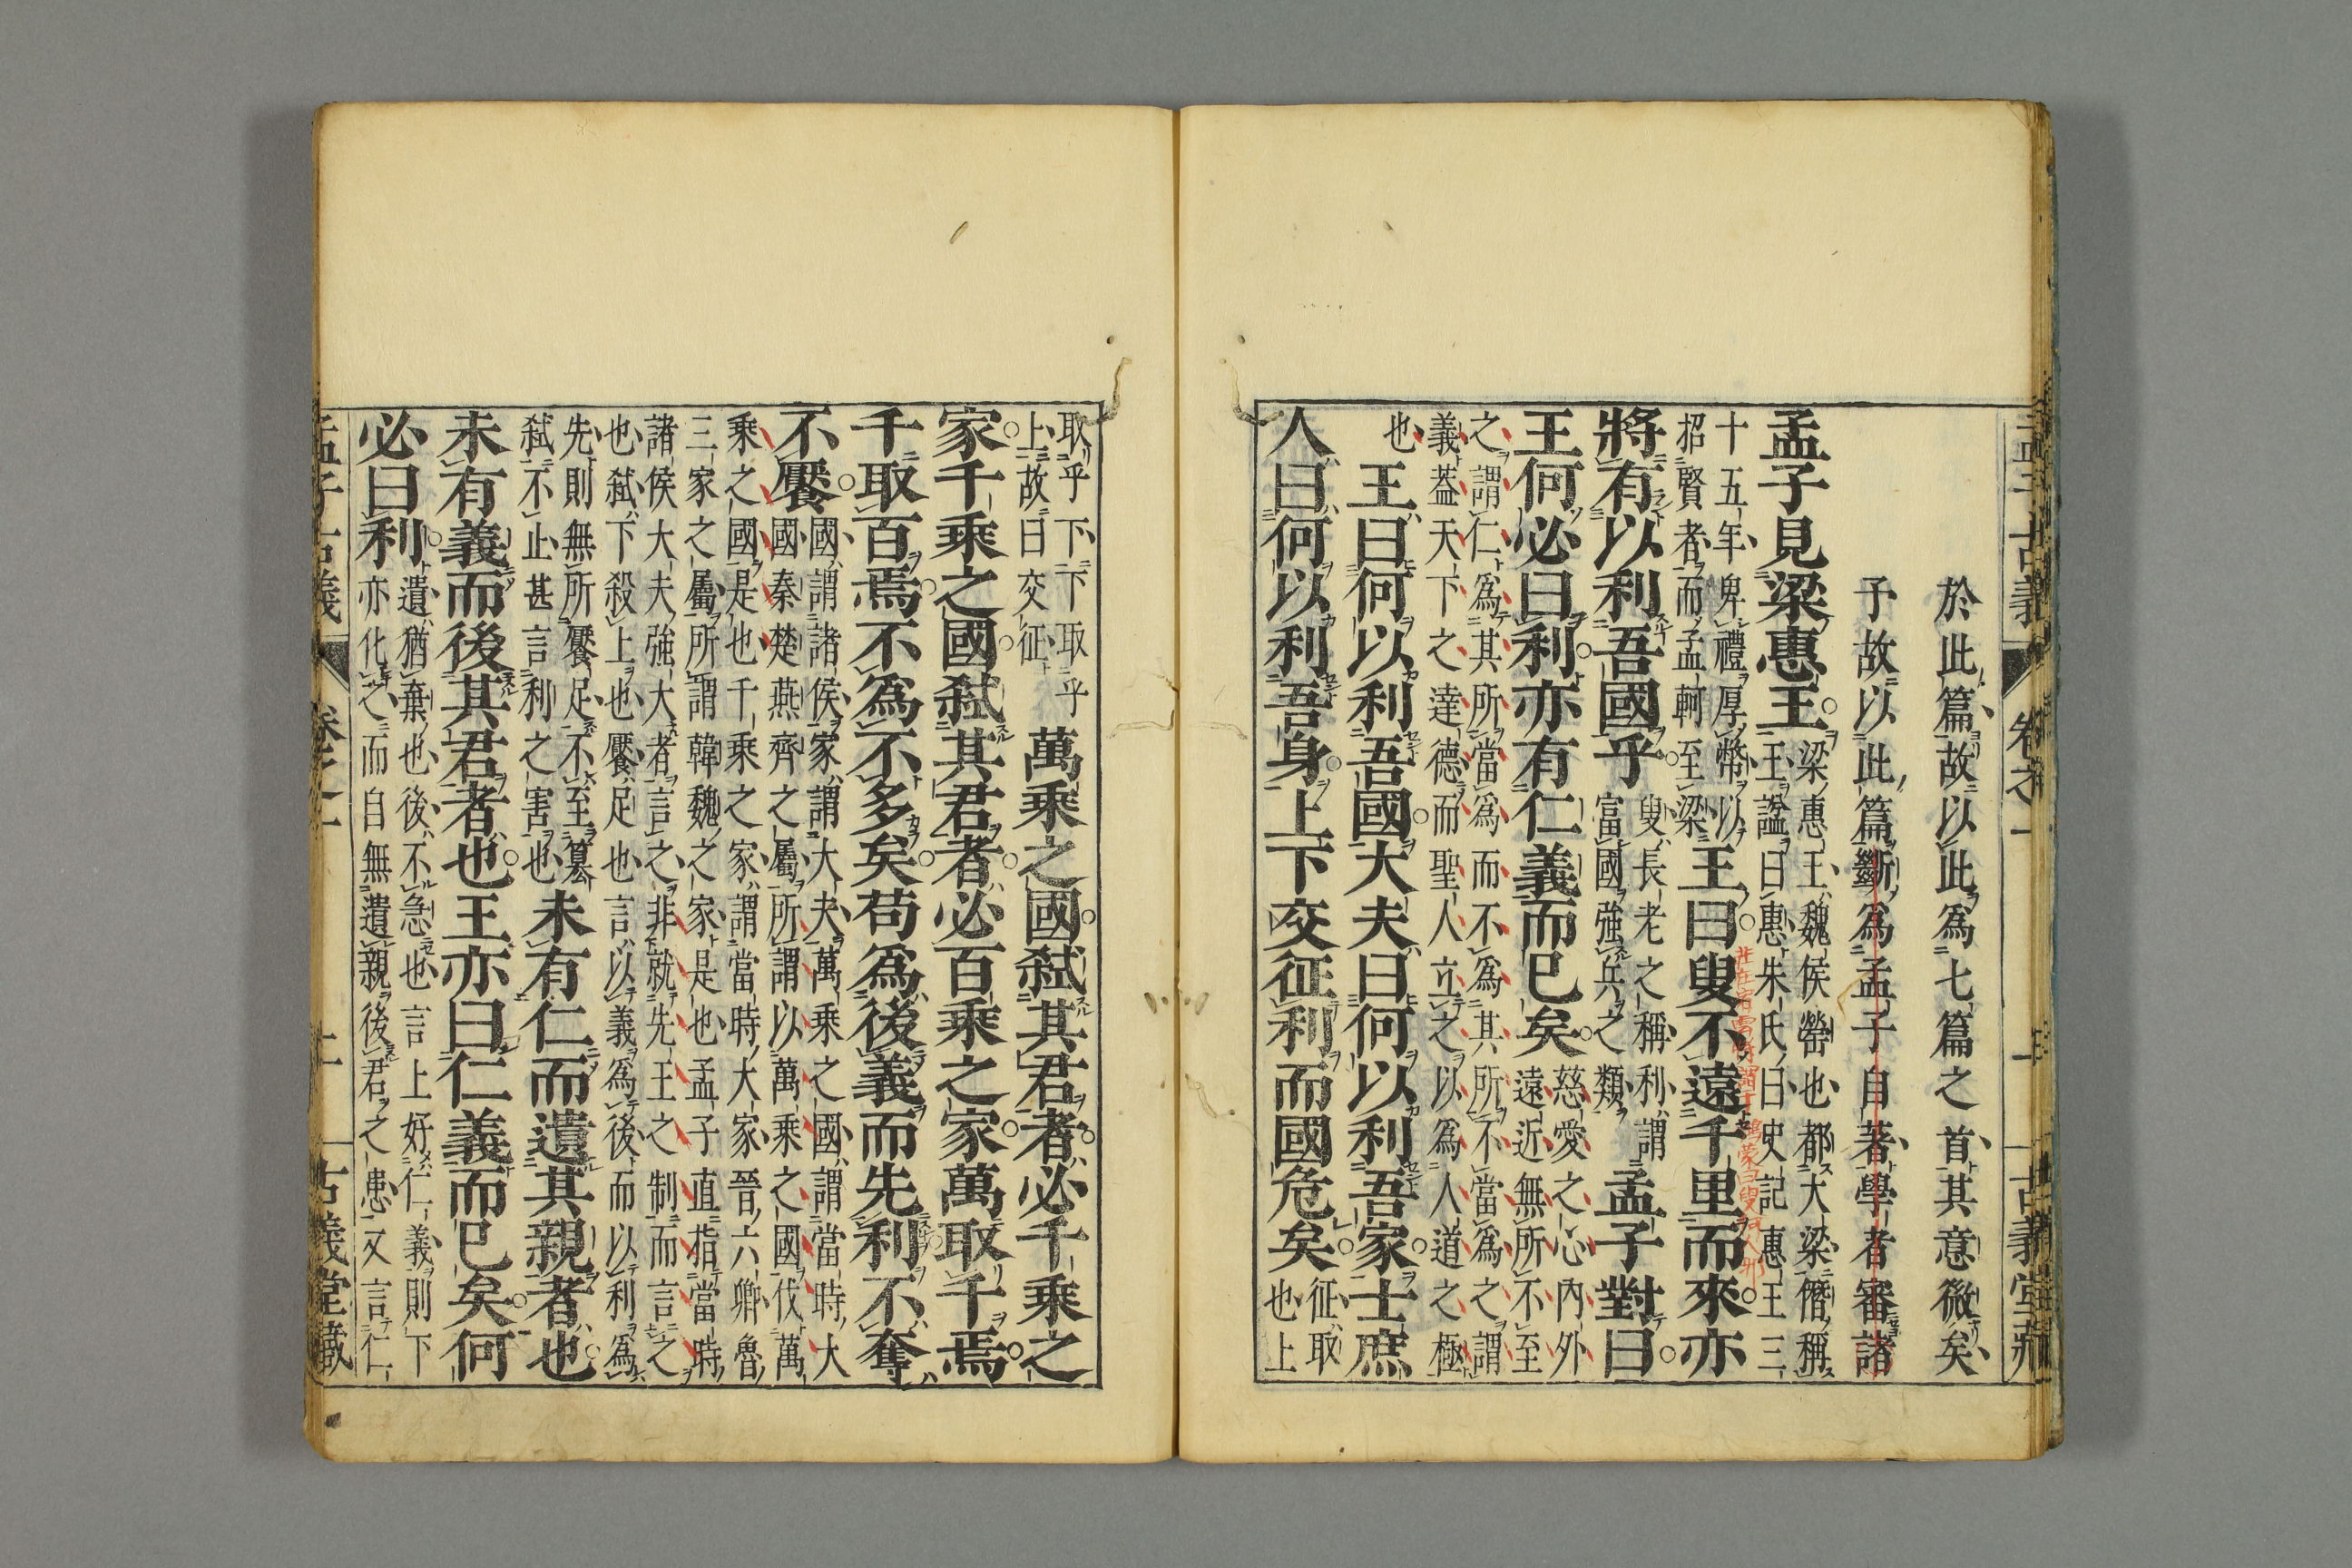 孟子古義 卷之一 一 古義堂藏
於此篇故以此為七篇之首其意微矣
予故以此篇斷為孟子自著學者審諸
孟子見梁惠王
梁惠王魏侯罃也都大梁僭稱
王諡曰惠朱氏曰史記惠王三
十五年卑禮厚幣以
招賢者而孟軻至梁
王曰叟不遠千里而來亦
將有以利吾國乎
叟長老之稱利謂
富國強兵之類
孟子對曰
王何必曰利亦有仁義而已矣
慈愛之心內外
遠近無所不至
之謂仁為其所當為而不為其所不當為之謂
義蓋天下之達德而聖人立之以為人道之極
也
王曰何以利吾國大夫曰何以利吾家士庶
人曰何以利吾身上下交征利而國危矣
征取
也上
取乎下下取乎
上故曰交征
萬乘之國弒其君者必千乘之
家千乘之國弒其君者必百乘之家萬取千焉
千取百焉不為不多矣苟為後義而先利不奪
不饜
國謂諸侯家謂大夫萬乘之國謂當時大
國秦楚燕齊之屬所謂以萬乘之國伐萬
乘之國是也千乘之家謂當時大家晉六卿魯
三家之屬所謂韓魏之家是也孟子直指當時
諸侯大夫強大者言之非就先王之制而言之
也弒下殺上也饜足也言以義為後而以利為
先則無所饜足不至篡
弒不止甚言利之害也
未有仁而遺其親者也
未有義而後其君者也王亦曰仁義而已矣何
必曰利
遺猶棄也後不急也言上好仁義則下
亦化之而自無遺親後君之患又言仁
孟子古義 卷之一 二 古義堂藏